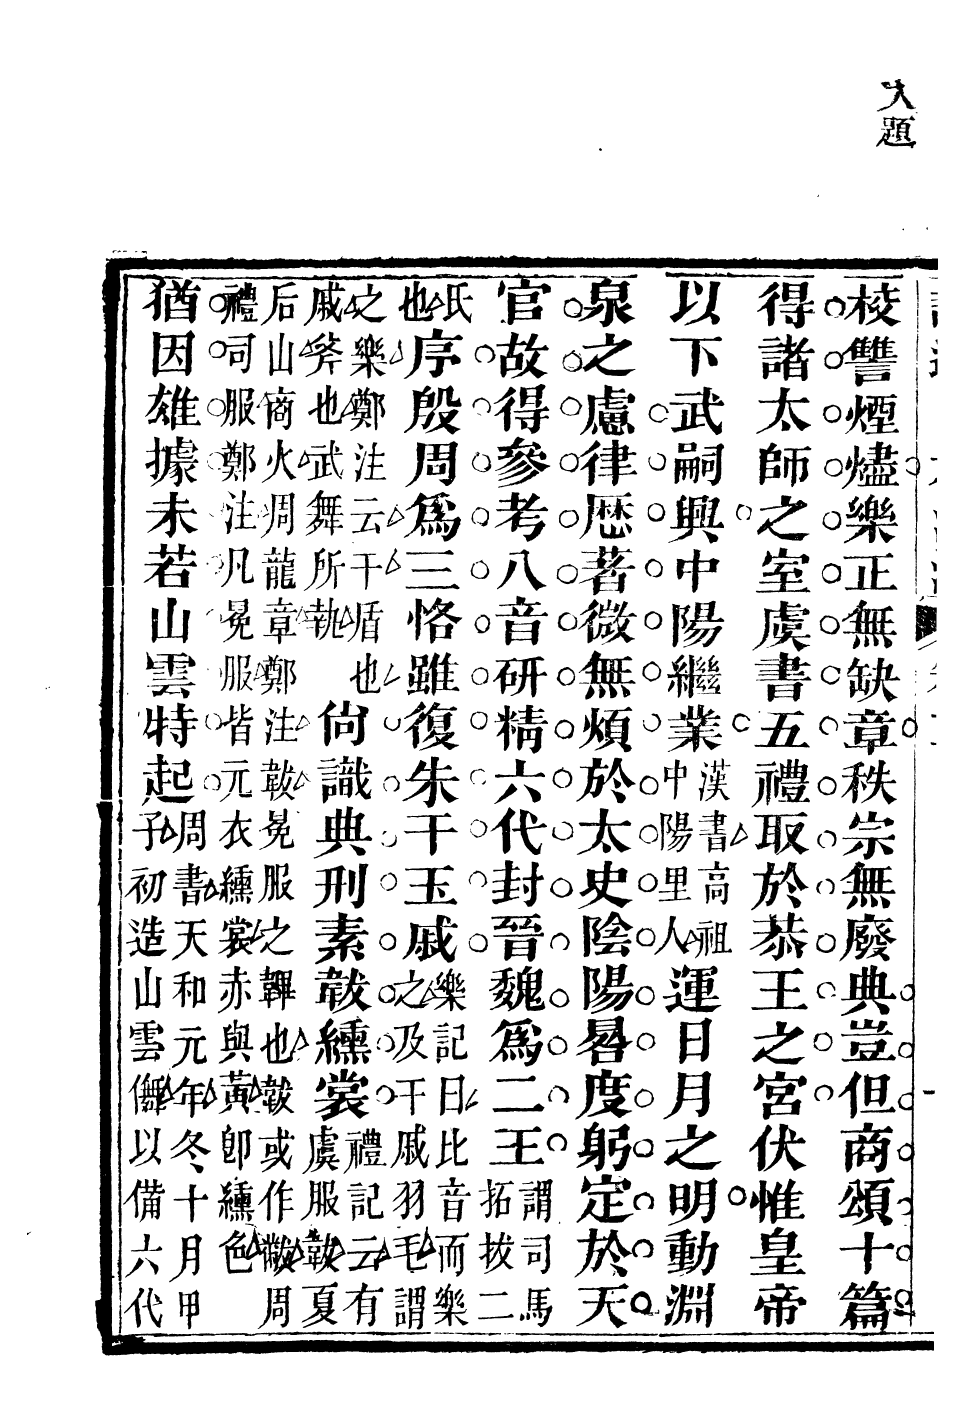 大題
校讐煙燼樂正無缺章秩宗無廢典豈但商頌十篇
得諸太師之室虞書五禮取於恭王之宮伏惟皇帝
以下武嗣興中陽繼業漢書高祖中陽里人運日月之明動淵
泉之慮律歷著微無煩於太史陰陽晷度躬定於天
官故得參考八音研精六代封晉魏爲二王謂司馬拓拔二
氏也序殷周爲三恪雖復朱干玉戚樂記曰比音而樂之及干戚羽毛謂
之樂鄭注云干盾也戚斧也武舞所執尙識典刑素韍纁裳禮記云有虞服韍夏
后山商火周龍章鄭注韍冕服之韠也韍或作黻周禮司服鄭注凡冕服皆元衣纁裳赤與黃卽纁色
猶因雄據未若山雲特起周書天和元年冬十月甲子初造山雲儛以備六代